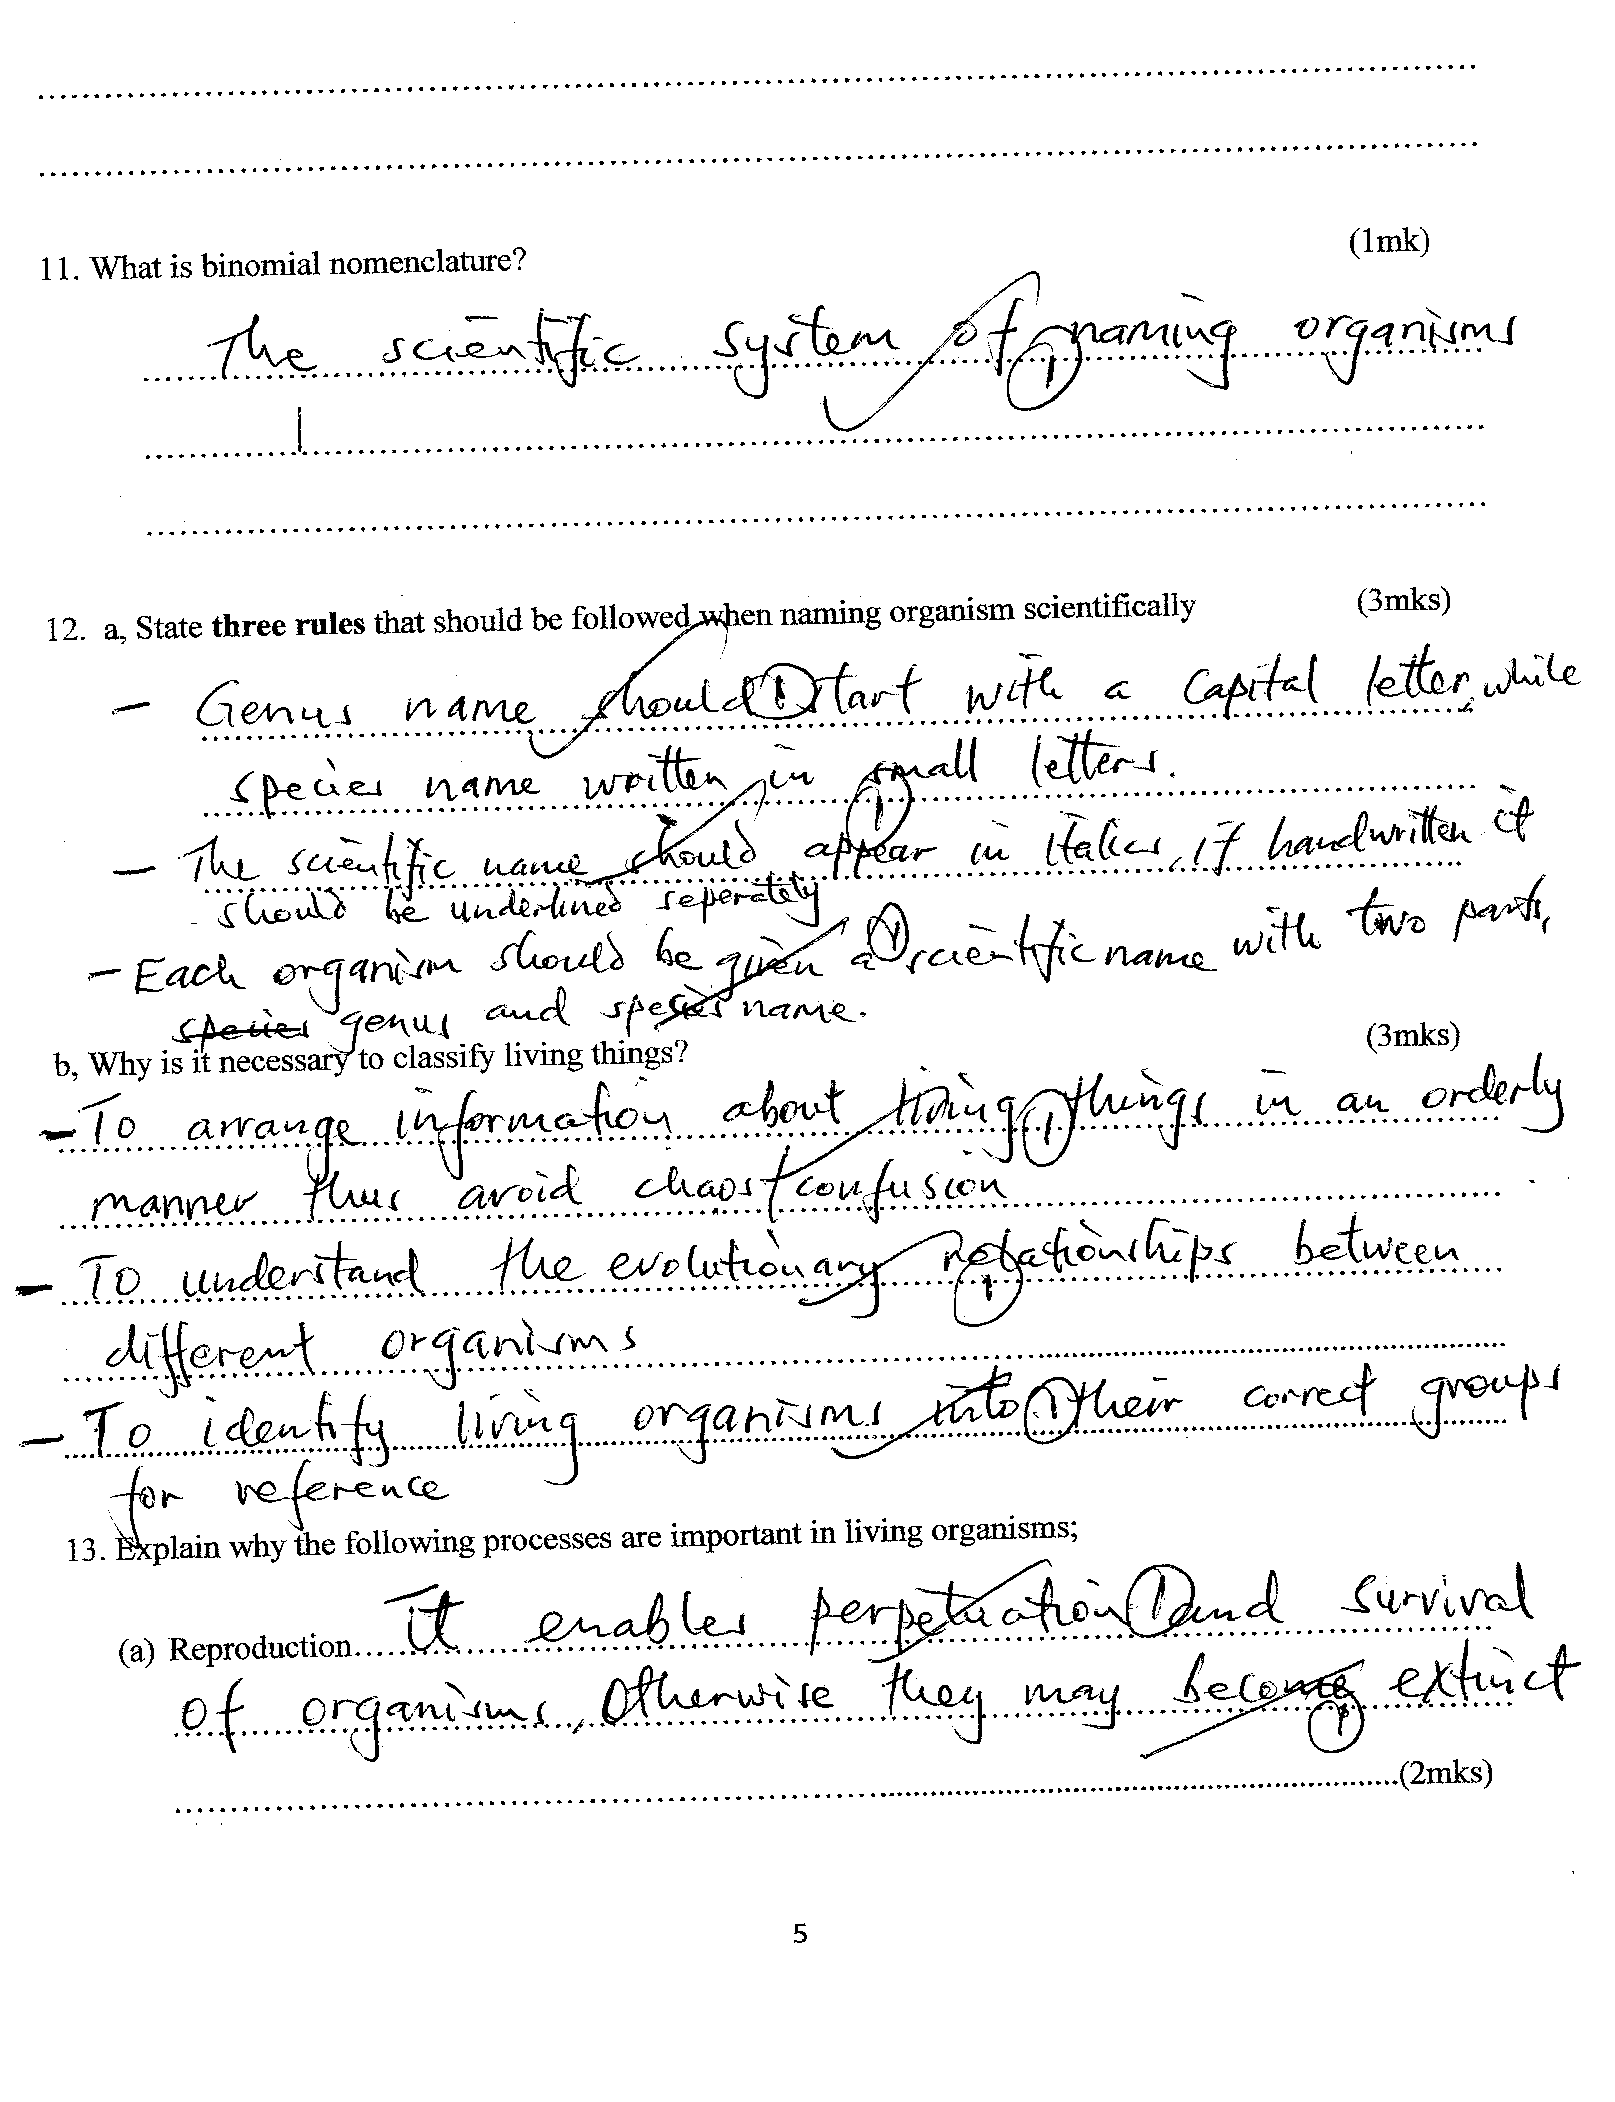 11. What is binomial nomenclature? (1mk)
The scientific system of naming organisms
12. a, State three rules that should be followed when naming organism scientifically (3mks)
- Genus name should start with a capital letter, while
species name written in small letters.
- The scientific name should appear in italics, if handwritten it
should be underlined seperately
- Each organism should be given a scientific name with two parts,
species genus and species name.
b, Why is it necessary to classify living things? (3mks)
- To arrange information about living things in an orderly
manner thus avoid chaos/confusion
- To understand the evolutionary relationships between
different organisms
- To identify living organisms into their correct groups
for reference
13. Explain why the following processes are important in living organisms;
(a) Reproduction It enables perpetuation and survival
of organisms, Otherwise they may become extinct
(2mks)
5